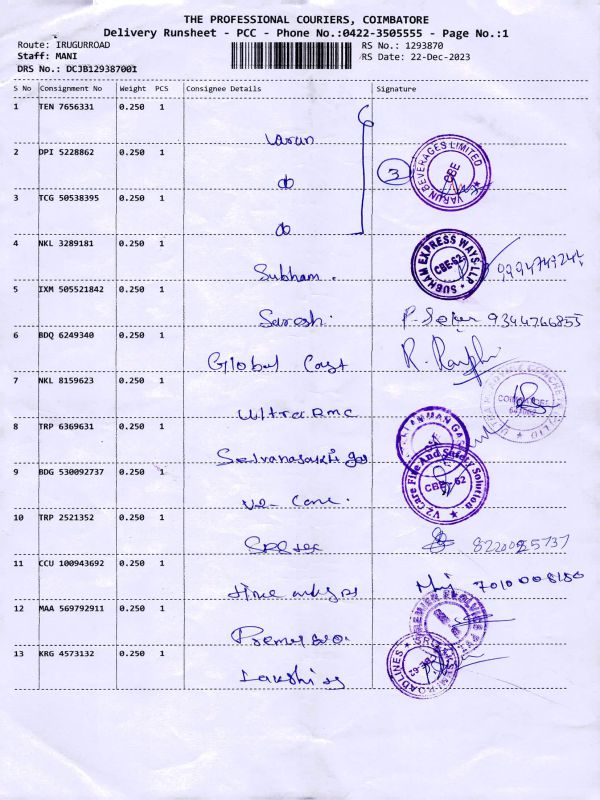 THE PROFESSIONAL COURIERS, COIMBATORE
Delivery Runsheet - PCC - Phone No.:0422-3505555 - Page No.:1
Route: IRUGURROAD
RS No.: 1293870
Staff: MANI
RS Date: 22-Dec-2023
DRS No.: DCJB129387001
S No Consignment No Weight PCS Consignee Details Signature
1 TEN 7656331 0.250 1 Varun
2 DPI 5228862 0.250 1 do 3 VARUN BEVERAGES LIMITED CBE
3 TCG 50538395 0.250 1 do
4 NKL 3289181 0.250 1 Subham. SUBHAM EXPRESS WAYS LLP CBE-62
5 IXM 505521842 0.250 1 Saresh. 9344766855
6 BDQ 6249340 0.250 1 Global Cast
7 NKL 8159623 0.250 1 Ultra RMC
8 TRP 6369631 0.250 1
9 BDG 530092737 0.250 1 V2 Care. V2 Care Fire And Safety Solution CBE-62
10 TRP 2521352 0.250 1
11 CCU 100943692 0.250 1 7010008180
12 MAA 569792911 0.250 1
13 KRG 4573132 0.250 1 ROADLINES